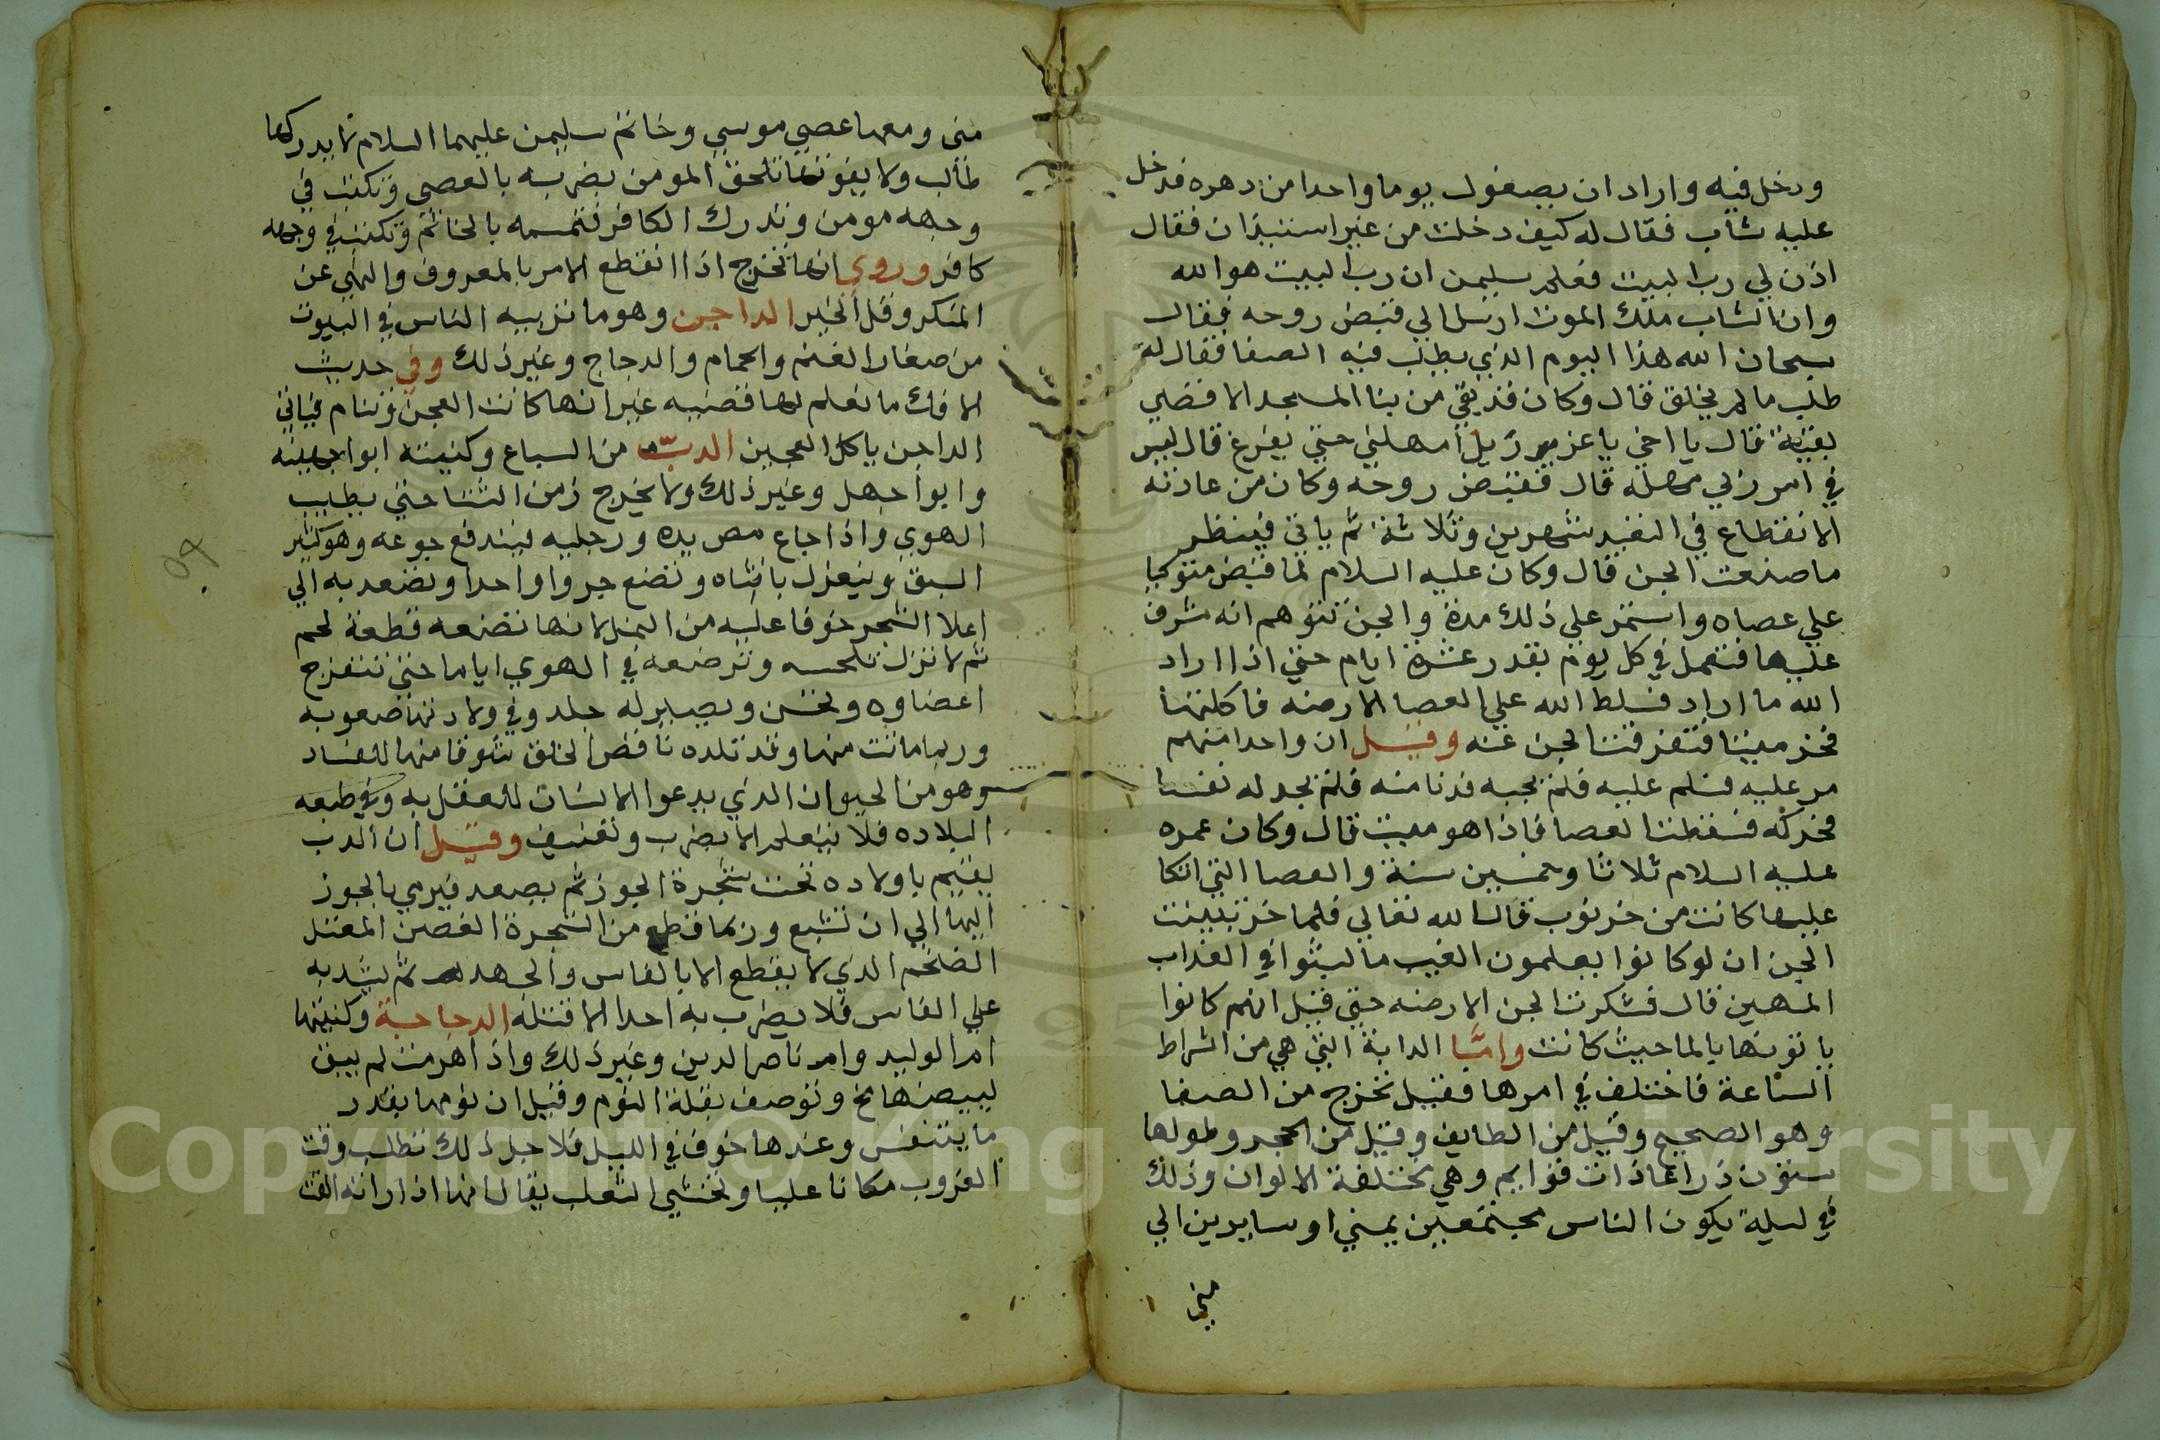 ودخل فيه واراد ان يصفوله يوما واحدا من دهره فدخل
عليه شاب فقال له كيف دخلت من غير استيذان فقال
اذن لي رب البيت فعلم سليمن ان رب البيت هو الله
وان الشاب ملك الموت ارسل الي قبض روحه فقال
سبحان الله هذا اليوم الذي يطلب فيه الصفا فقال له
طلب ما لم يخلق قال وكان قد بقي من بنا المسجد الاقصي
بقية قال يا اخي يا عزريل امهلني حتي يفرغ قال ليس
في امر ربي مهلة قال فقبض روحه وكان من عادته
الانقطاع في التعبد شهرين وثلاثة ثم ياتي فينظر
ما صنعت الجن قال وكان عليه السلام لما قبض متوكيا
علي عصاه واستمر علي ذلك مدة والجن تتوهم انه مشرف
عليها فتعمل في كل يوم بقدر عشرة ايام حتي اذا اراد
الله ما اراد فسلط الله علي العصا الارضه فاكلتها
فخر ميتا فتفرقت الجن عنه وقيل ان واحدا منهم
مر عليه فسلم عليه فلم يجبه فدنا منه فلم يجد له نفسا
فحركه فسقطت العصا فاذا هو ميت قال وكان عمره
عليه السلام ثلاثا وخمسين سنة والعصا التي اتكا
عليها كانت من خرنوب قال الله تعالي فلما خر تبينت
الجن ان لو كانوا يعلمون الغيب ما لبثوا في العذاب
المهين قال فشكرت الجن الارضه حتي قيل انهم كانوا
ياتونها بالما حيث كانت واما الدابة التي هي من اشراط
الساعة فاختلف في امرها فقيل تخرج من الصفا
وهو الصحيح وقيل من الطايف وقيل من الحجر وطولها
ستون ذراعا ذات قوايم وهي مختلفة الالوان وذلك
في ليلة يكون الناس مجتمعين بمني او سايرين الي
مني
مني ومعها عصي موسي وخاتم سليمن عليهما السلام لا يدركها
طالب ولا يفوتها تلحق المومن بضربه بالعصي وتكتب في
وجهه مومن وتدرك الكافر فتسمه بالخاتم وتكتب في وجهه
كافر وروي انها تخرج اذا انقطع الامر بالمعروف والنهي عن
المنكر وقل الخير الداجن وهو ما تربيه الناس في البيوت
من صغار الغنم والحمام والدجاج وغير ذلك وفي حديث
الافك ما نعلم لها قضيبه غير انها كانت العجن وتنام فياتي
الداجن ياكل العجين الدب من السباع وكنيته ابوا جهينه
وابوا جهل وغير ذلك ولا يخرج زمن الشتا حتي يطيب
الهوي واذا جاع مص يده ورجليه فيندفع جوعه وهو كثير
السبق وينعزل بانثاه وتضع جروا واحدا وتضعد به الي
اعلا الشجر خوفا عليه من النمل لانها تضعه قطعة لحم
ثم لا تزل تلحسه وترضعه في الهوي اياما حتي تنفرج
اعضاوه وتخشن ويصير له جلد وفي ولادتها صعوبه
وربما ماتت منها وقد تلده ناقص الخلق شوقا منها للفساد
وهو من الحيوان الذي يدعوا الانسان للفعل به وفي طبعه
البلاده فلا يتعلم الا بضرب وتعنيف وقيل ان الدب
يقيم باولاده تحت شجرة الجوز ثم يصعد فيرمي بالجوز
اليها الي ان تشبع وربما قطع من الشجرة الغصن المعتل
الضخم الذي لا يقطع الا بالفاس والجهد ثم يشد به
علي الفارس فلا يضرب به احدا الا قتله الدجاجة وكنيتها
ام الوليد وام ناصر الدين وغير ذلك واذا هرمت لم يبق
لبيضها مخ وتوصف بقلة النوم وقيل ان نومها بقدر
ما يتنفس وعندها خوف في الليل فلاجل ذلك تطلب وقت
الغروب مكانا عليا وتخشي الثعلب يقال انها اذا راته القت